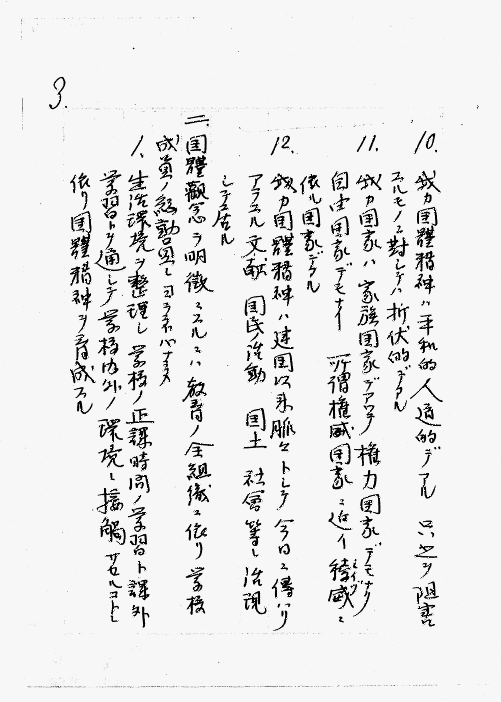 3.
10. 我カ国體精神ハ平和的人道的デアル 只之ヲ阻害
スルモノニ對シテハ折伏的デアル
11. 我カ国家ハ家族国家デアッテ権力国家デモナク
自由国家デモナイ 所謂権威国家ニ近イ稜威ニ
依ル国家デアル
12. 我カ国體精神ハ建国以来脈々トシテ今日ニ傳ハリ
アラユル文献 国民活動 国土 社會等ニ活現
シテ居ル
二、国體觀念ヲ明徴ニスルニハ教育ノ全組織ニ依リ学校
成員ノ総動員ニヨラネバナラヌ
1、生活環境ヲ整理シ学校ノ正課時間ノ学習ト課外
学習トヲ通シテ学校内外ノ環境ニ接觸サセルコトニ
依リ国體精神ヲ育成スル